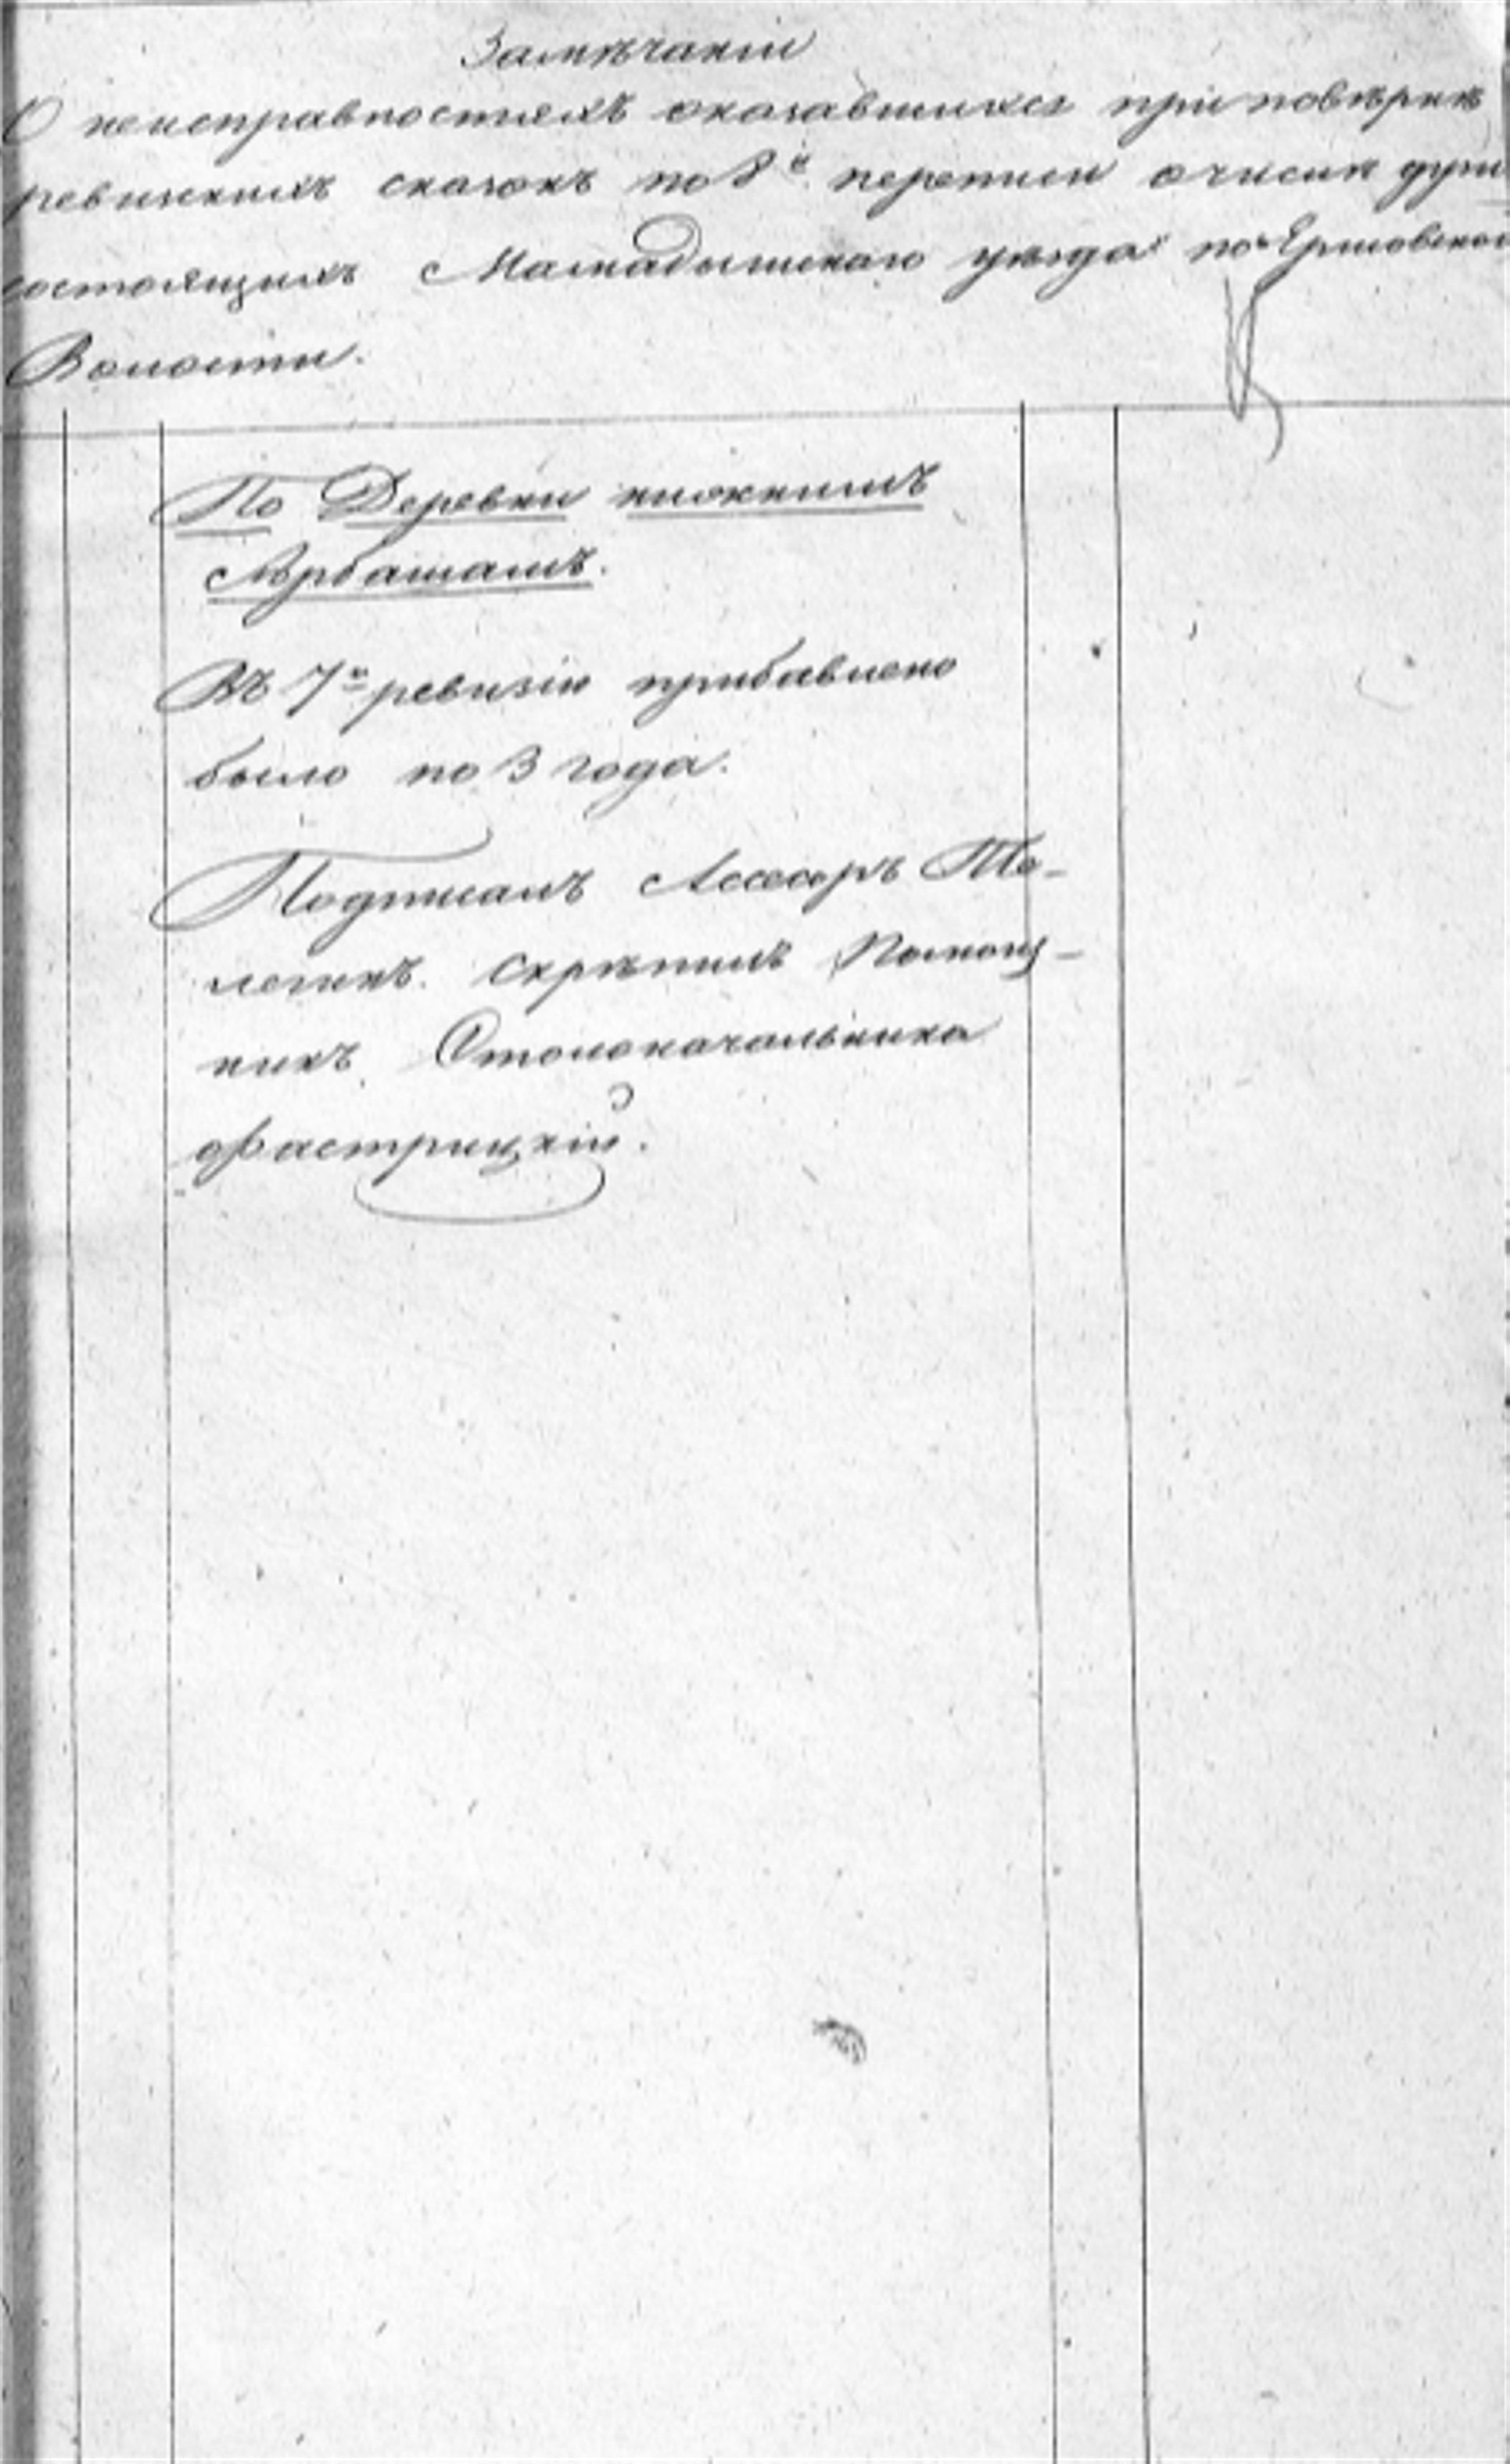 Замѣчаніи
О неисправностяхъ оказавшихся при повѣркѣ
ревижскихъ сказокъ по 8й переписи о числѣ душ
состоящихъ Мамадышскаго уѣзда по Ершовской
Волости.
По Деревни нижнимъ
Арбашамъ.
Въ 7й ревизіи прибавлено
было по 3 года.
Подписалъ Асесоръ
Скрѣпилъ Помощ-
никъ Столоначальника
Фастрицкій.